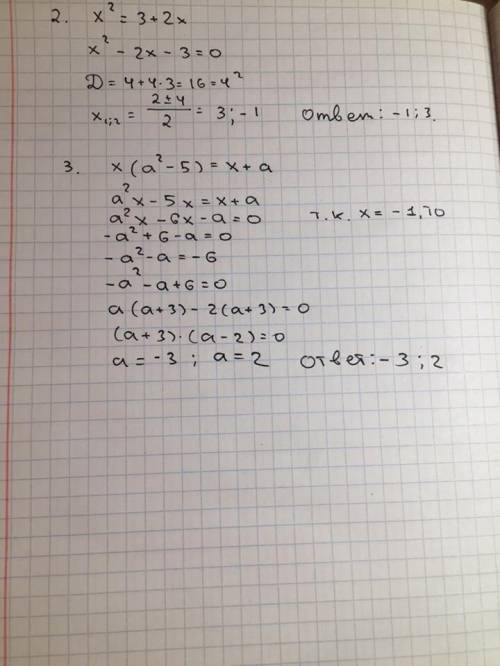 2. x² = 3 + 2x
x² - 2x - 3 = 0
D = 4 + 4·3 = 16 = 4²
x₁;₂ = (2 ± 4)/2 = 3; -1 ответ: -1; 3.
3. x(a² - 5) = x + a
a²x - 5x = x + a
a²x - 6x - a = 0 т.к. x = -1, то
-a² + 6 - a = 0
-a² - a = -6
-a² - a + 6 = 0
a(a + 3) - 2(a + 3) = 0
(a + 3)·(a - 2) = 0
a = -3 ; a = 2 ответ: -3 ; 2